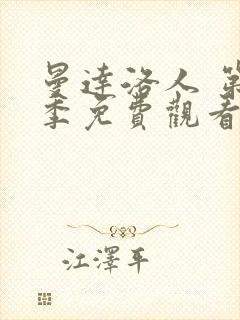 曼達洛人 第
季免費觀看
江澤平